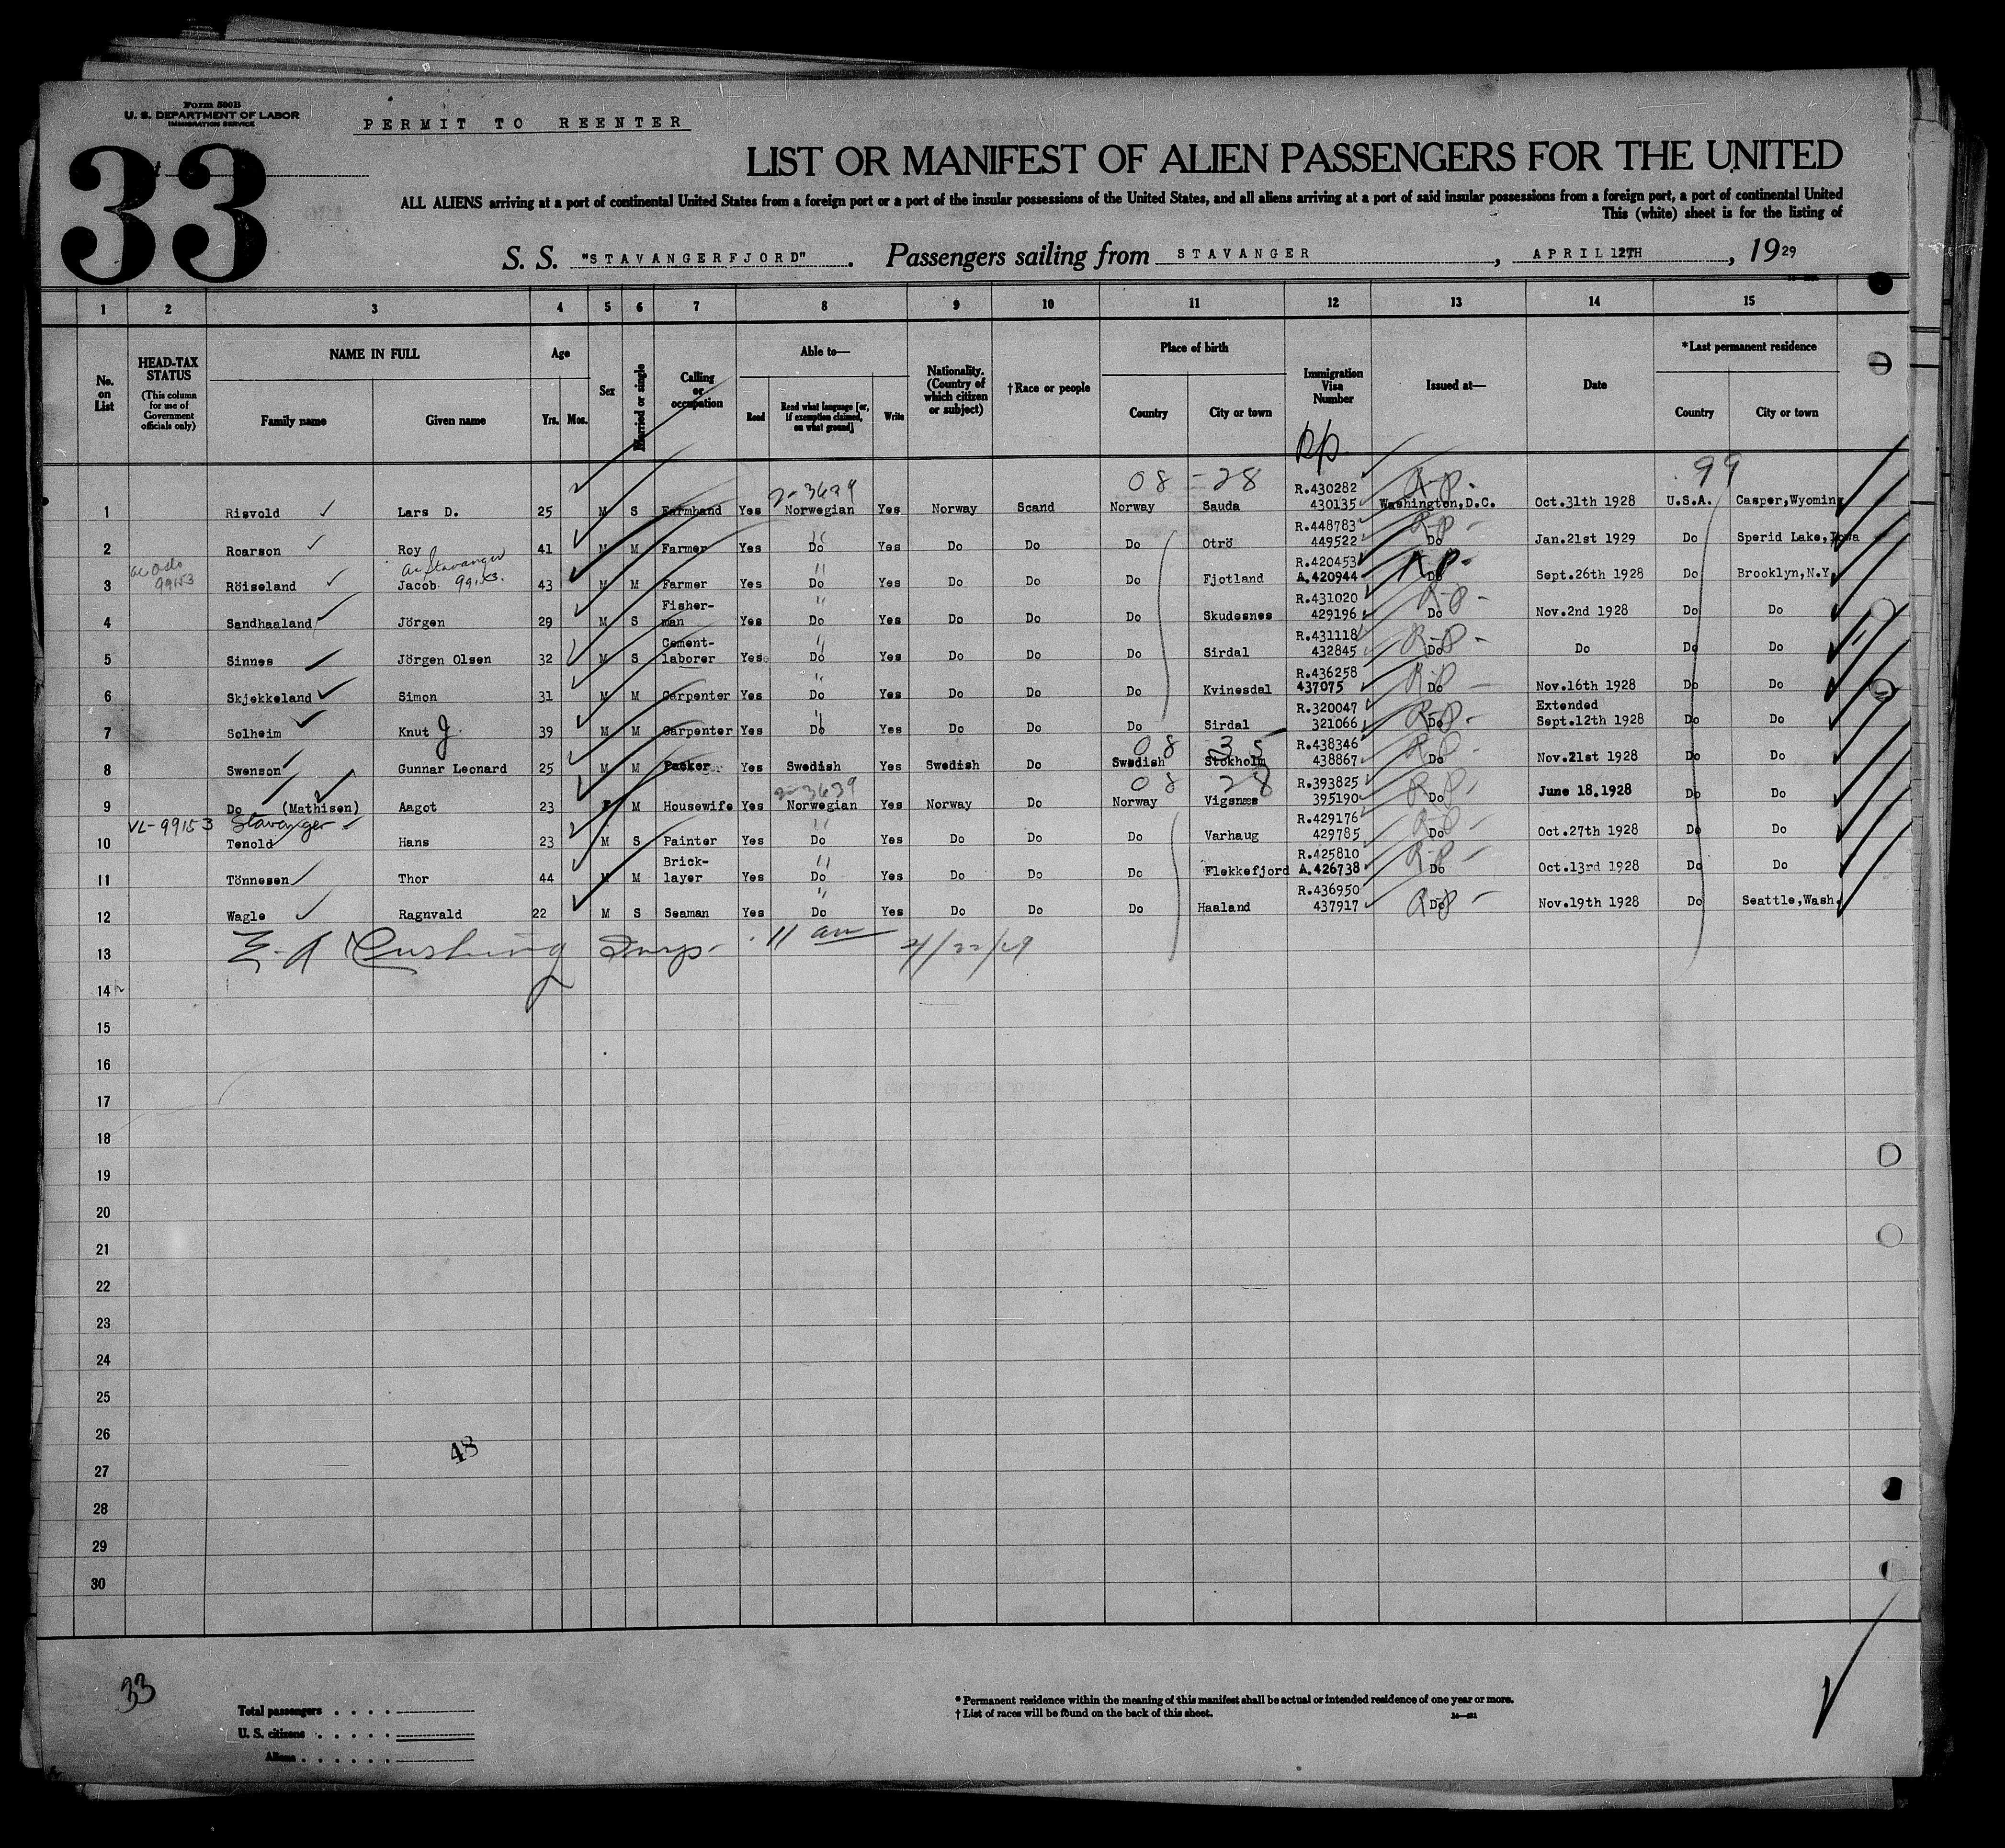 Form 500B
U. S. DEPARTMENT OF LABOR
IMMIGRATION SERVICE
PERMIT TO REENTER
33
LIST OR MANIFEST OF ALIEN PASSENGERS FOR THE UNITED
ALL ALIENS arriving at a port of continental United States from a foreign port or a port of the insular possessions of the United States, and all aliens arriving at a port of said insular possessions from a foreign port, a port of continental United
This (white) sheet is for the listing of
S. S. "STAVANGERFJORD". Passengers sailing from STAVANGER, APRIL 12TH, 1929
1 2 3 4 5 6 7 8 9 10 11 12 13 14 15
No. on List
HEAD-TAX STATUS
(This column for use of Government officials only)
NAME IN FULL
Family name Given name
Age
Yrs. Mos.
Sex
Married or single
Calling or occupation
Able to—
Read
Read what language [or, if exemption claimed, on what ground]
Write
Nationality. (Country of which citizen or subject)
†Race or people
Place of birth
Country City or town
Immigration Visa Number
Issued at—
Date
*Last permanent residence
Country City or town
RP
2-3639 08 - 28 R-P- 99
1 Risvold Lars D. 25 M S Farmhand Yes Norwegian Yes Norway Scand Norway Sauda R.430282 430135 Washington,D.C. Oct.31th 1928 U.S.A. Casper,Wyoming
2 Roarson Roy 41 M M Farmer Yes Do Yes Do Do Do Otrö R.448783 449522 Do Jan.21st 1929 Do Sperid Lake,Iowa
ac Oslo 99153 ac Stavanger 99153.
3 Röiseland Jacob 43 M M Farmer Yes Do Yes Do Do Do Fjotland R.420453 A.420944 Do Sept.26th 1928 Do Brooklyn,N.Y.
4 Sandhaaland Jörgen 29 M S Fisher-man Yes Do Yes Do Do Do Skudesnes R.431020 429196 Do Nov.2nd 1928 Do Do
5 Sinnes Jörgen Olsen 32 M S Cement-laborer Yes Do Yes Do Do Do Sirdal R.431118 432845 Do Do Do Do
6 Skjekkeland Simon 31 M M Carpenter Yes Do Yes Do Do Do Kvinesdal R.436258 437075 Do Nov.16th 1928 Do Do
7 Solheim Knut J. 39 M M Carpenter Yes Do Yes Do Do Do Sirdal R.320047 321066 Do Extended Sept.12th 1928 Do Do
08 35
8 Swenson Gunnar Leonard 25 M M Packer Yes Swedish Yes Swedish Do Swedish Stokholm R.438346 438867 Do Nov.21st 1928 Do Do
2-3639 08 28
9 Do (Mathisen) Aagot 23 F M Housewife Yes Norwegian Yes Norway Do Norway Vigsnæs R.393825 395190 Do June 18.1928 Do Do
VL-99153 Stavanger
10 Tenold Hans 23 M S Painter Yes Do Yes Do Do Do Varhaug R.429176 429785 Do Oct.27th 1928 Do Do
11 Tönnesen Thor 44 M M Brick-layer Yes Do Yes Do Do Do Flekkefjord R.425810 A.426738 Do Oct.13rd 1928 Do Do
12 Wagle Ragnvald 22 M S Seaman Yes Do Yes Do Do Do Haaland R.436950 437917 Do Nov.19th 1928 Do Seattle,Wash.
13 E. A Cushing Insp. 11 am 4/22/29
14
15
16
17
18
19
20
21
22
23
24
25
26
48
27
28
29
30
33
Total passengers
U. S. citizens
Aliens
* Permanent residence within the meaning of this manifest shall be actual or intended residence of one year or more.
† List of races will be found on the back of this sheet.